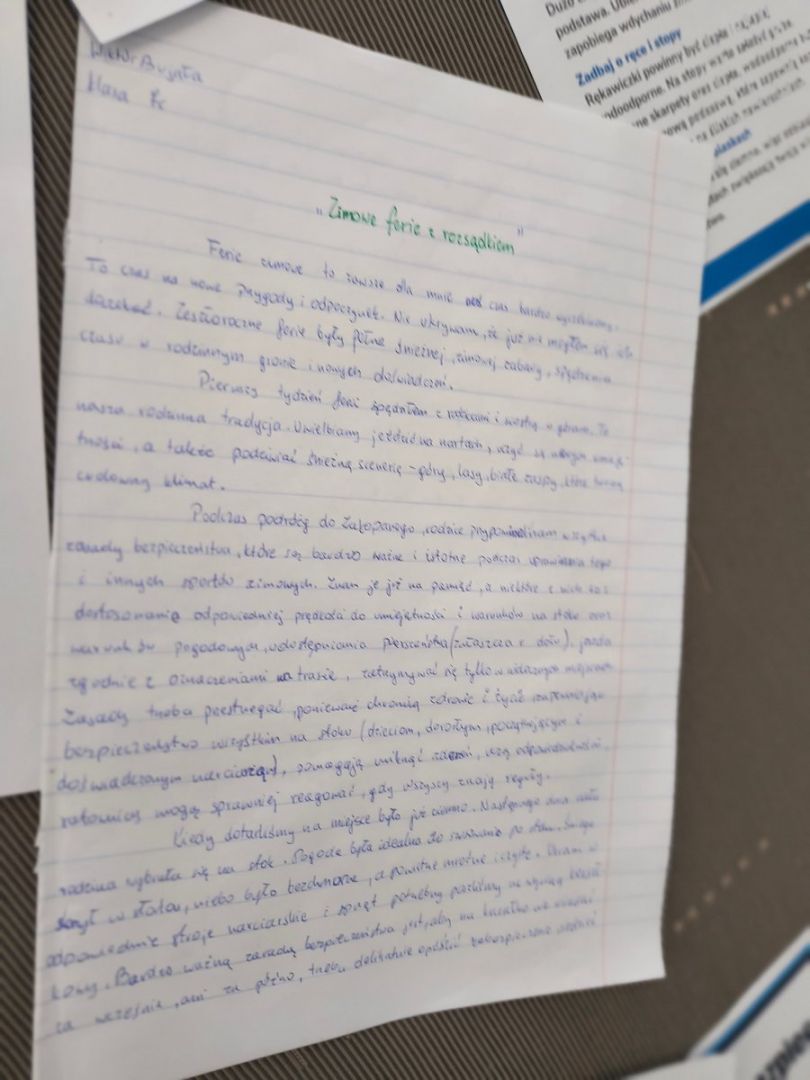 Wiktor Bujała
klasa
"Zimowe ferie z rozsądkiem"
Ferie zimowe to zawsze dla mnie czas bardzo wyczekiwany.
To czas na nowe przygody i odpoczynek. Nie ukrywam, że już nie mogłem się ich
doczekać. Zeszłoroczne ferie były pełne śnieżnej, zimowej zabawy, spędzenia
czasu w rodzinnym gronie i nowych doświadczeń.
Pierwszy tydzień ferii spędziłem z rodzicami i siostrą w górach. To
nasza rodzinna tradycja. Uwielbiamy jeździć na nartach, uczyć się nowych umiejęt-
ności, a także podziwiać śnieżną scenerię - góry, lasy, białe zaspy, które tworzą
cudowny klimat.
Podczas podróży do Zakopanego, rodzice przypominali nam wszystkie
zasady bezpieczeństwa, które są bardzo ważne i istotne podczas uprawiania tego
i innych sportów zimowych. Znam je już na pamięć, a niektóre z nich to:
dostosowanie odpowiedniej prędkości do umiejętności i warunków na stoku oraz
warunków pogodowych, udostępniania pierszeństwa (zwłaszcza z dołu), jazda
zgodnie z oznaczeniami na trasie, zatrzymywać się tylko w widocznym miejscu.
Zasady trzeba przestrzegać, ponieważ chronią zdrowie i życie zapewniając
bezpieczeństwo wszystkim na stoku (dzieciom, dorosłym, początkującym i
doświadczonym narciarzom), pomagają uniknąć zderzeń, uczą odpowiedzialności
ratownicy mogą sprawniej reagować, gdy wszyscy znają reguły.
Kiedy dotarliśmy na miejsce było już ciemno. Następnego dnia cała
rodzina wybrała się na stok. Pogoda była idealna do szusowania po stoku. Śnieg
skrzył w słońcu, niebo było bezchmurne, a powietrze mroźne i czyste. Ubrani w
odpowiednie stroje narciarskie i sprzęt potrzebny poszliśmy na wyciąg krzeseł-
kowy. Bardzo ważną zasadą bezpieczeństwa jest, aby na krzesełko nie wsiadać
za wcześnie, ani za późno, trzeba delikatnie opuścić zabezpieczenie
Dużo
podstawa.
zapobiega wdychaniu
Zadbaj o ręce i stopy
Rękawiczki powinny być ciepłe i
wodoodporne. Na stopy warto założyć
skarpety oraz ciepłe, wodoodporne
podeszwą, która zapewnia
na śliskich nawierzchniach